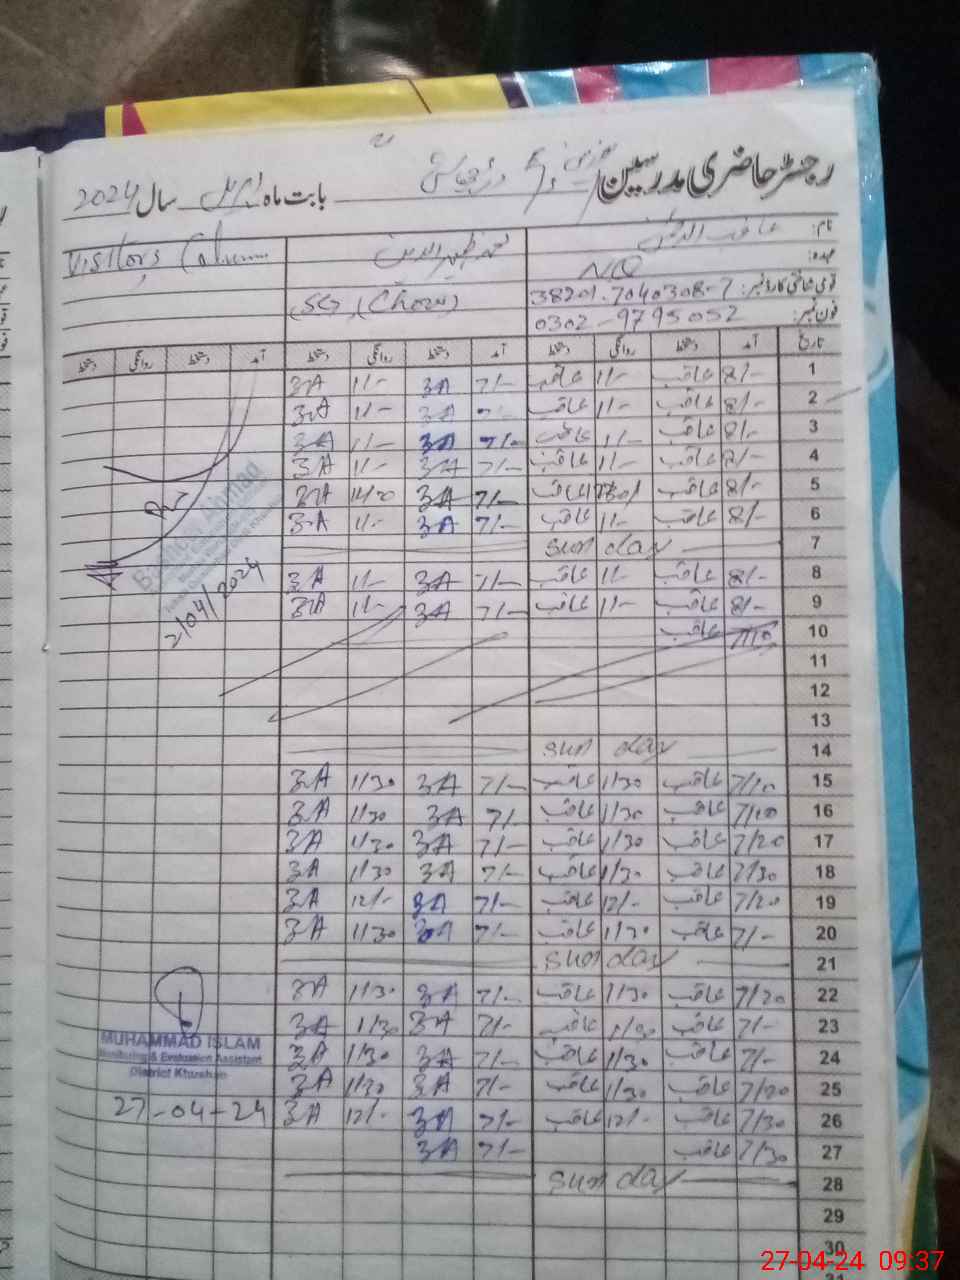 رجسٹر حاضری مدرسین
بابت ماہ اپریل سال 2024
Visitors Column
نام:
عہدہ: NQ
SG, (Chow)
قومی شناختی کارڈ نمبر: 38201-7040308-7
فون نمبر: 0302-9795052
تاریخ آمد دستخط روانگی دستخط آمد دستخط روانگی دستخط آمد دستخط روانگی دستخط
1 8/- عاقب 1/- عاقب 7/- ZA 1/- ZA
2 8/- عاقب 1/- عاقب 7/- ZA 1/- ZA
3 8/- عاقب 1/- عاقب 7/- ZA 1/- ZA
4 8/- عاقب 1/- عاقب 7/- ZA 1/- ZA
5 8/- عاقب عاقب 7/- ZA ZA
6 8/- عاقب 1/- عاقب 7/- ZA 1/- ZA
7 sunday
8 8/- عاقب 1/- عاقب 7/- ZA 1/- ZA
9 8/- عاقب 1/- عاقب 7/- ZA 1/- ZA
2/04/2024
10 7/10 عاقب
11
12
13
14 sunday
15 7/10 عاقب 1/30 عاقب 7/- ZA 1/30 ZA
16 7/10 عاقب 1/30 عاقب 7/- ZA 1/30 ZA
17 7/20 عاقب 1/30 عاقب 7/- ZA 1/30 ZA
18 7/30 عاقب 1/30 عاقب 7/- ZA 1/30 ZA
19 7/20 عاقب 12/- عاقب 7/- ZA 12/- ZA
20 7/- عاقب 1/30 عاقب 7/- ZA 1/30 ZA
21 sunday
22 7/20 عاقب 1/30 عاقب 7/- ZA 1/30 ZA
23 7/- عاقب 1/30 عاقب 7/- ZA 1/30 ZA
MUHAMMAD ISLAM
Monitoring & Evaluation Assistant
District Khushab
24 7/- عاقب 1/30 عاقب 7/- ZA 1/30 ZA
25 7/20 عاقب 1/30 عاقب 7/- ZA 1/30 ZA
26 7/30 عاقب 12/- عاقب 7/- ZA 12/- ZA
27-04-24
27 7/30 عاقب 7/- ZA
28 sunday
29
30
31
27-04-24 09:37